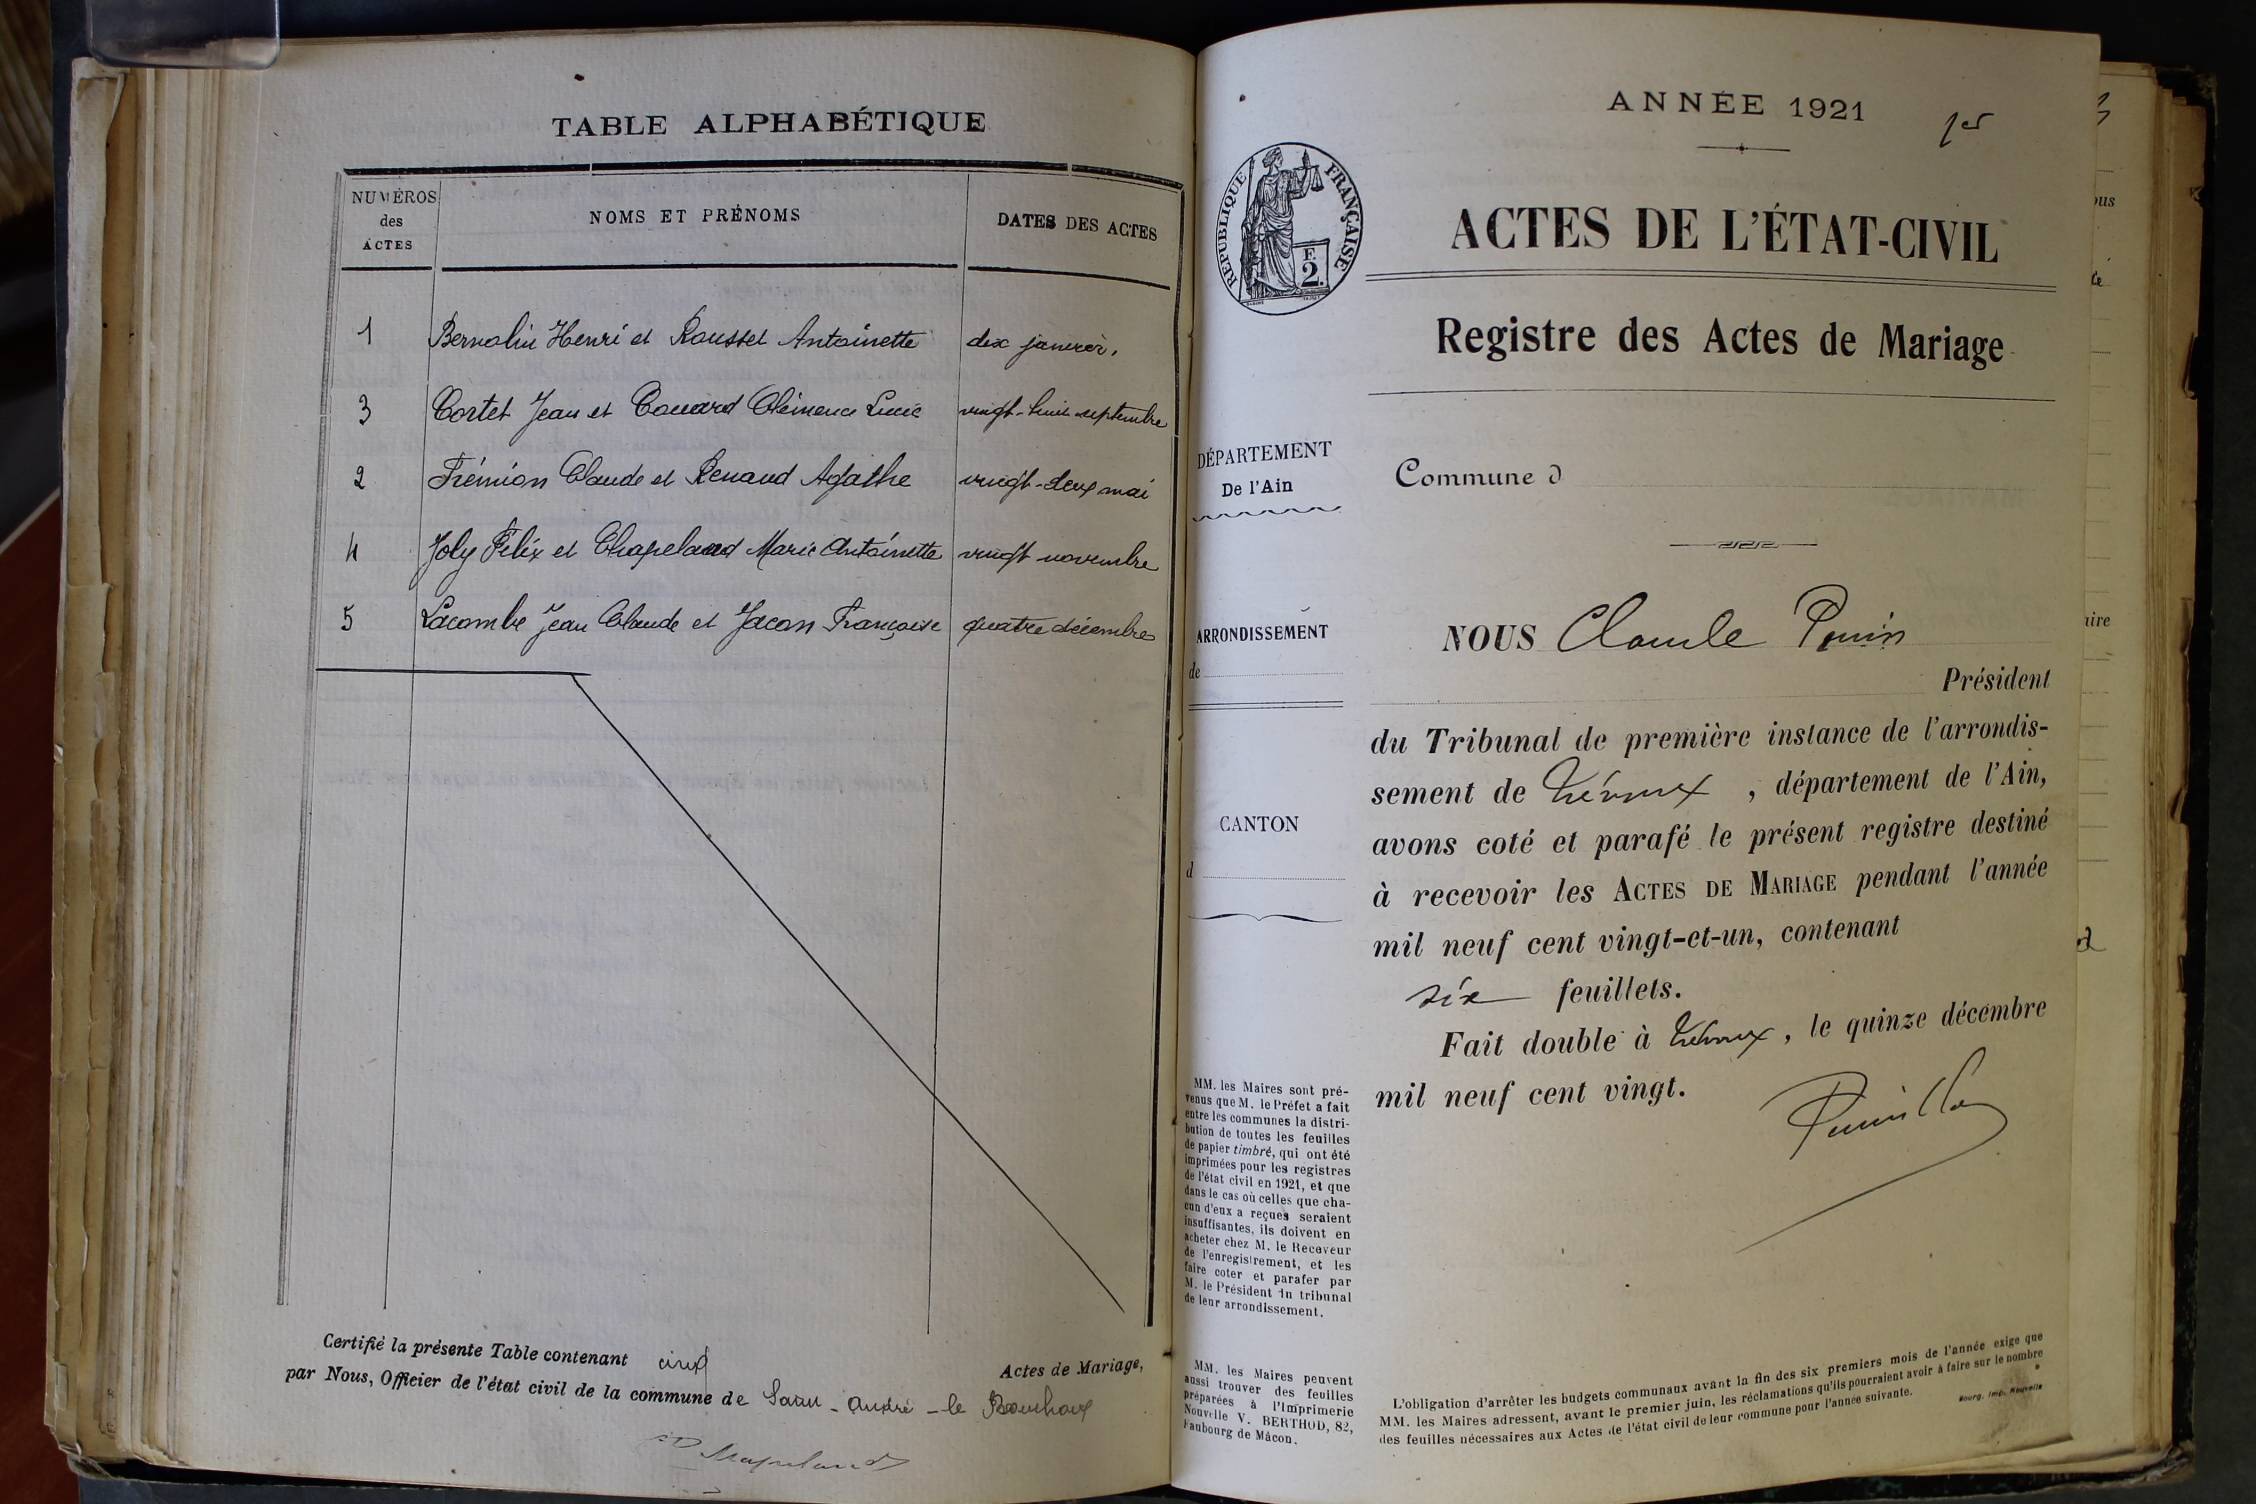 TABLE ALPHABÉTIQUE
NUMÉROS
des
ACTES
NOMS ET PRÉNOMS
DATES DES ACTES
1 Bernolin Henri et Rousset Antoinette dix janvier.
3 Cortet Jean et Couard Clémence Lucie vingt-huit septembre
2 Frémion Claude et Renaud Agathe vingt-deux mai
4 Joly Félix et Chapeland Marie Antoinette vingt novembre
5 Lacombe Jean Claude et Jacon Françoise quatre décembre
Certifié la présente Table contenant cinq Actes de Mariage,
par Nous, Officier de l'état civil de la commune de Saint-André-le Bouchoux
ANNÉE 1921
1er
RÉPUBLIQUE FRANÇAISE
F.
2.
ACTES DE L'ÉTAT-CIVIL
Registre des Actes de Mariage
DÉPARTEMENT
De l'Ain
ARRONDISSEMENT
de
CANTON
d
MM. les Maires sont pré-
venus que M. le Préfet a fait
entre les communes la distri-
bution de toutes les feuilles
de papier timbré, qui ont été
imprimées pour les registres
de l'état civil en 1921, et que
dans le cas où celles que cha-
cun d'eux a reçues seraient
insuffisantes, ils doivent en
acheter chez M. le Receveur
de l'enregistrement, et les
faire coter et parafer par
M. le Président du tribunal
de leur arrondissement.
MM. les Maires peuvent
aussi trouver des feuilles
préparées à l'Imprimerie
Nouvelle V. BERTHOD, 82,
Faubourg de Mâcon.
Commune d
NOUS Claude
Président
du Tribunal de première instance de l'arrondis-
sement de Trévoux, département de l'Ain,
avons coté et parafé le présent registre destiné
à recevoir les ACTES DE MARIAGE pendant l'année
mil neuf cent vingt-et-un, contenant
six feuillets.
Fait double à Trévoux, le quinze décembre
mil neuf cent vingt.
L'obligation d'arrêter les budgets communaux avant la fin des six premiers mois de l'année exige que
MM. les Maires adressent, avant le premier juin, les réclamations qu'ils pourraient avoir à faire sur le nombre
des feuilles nécessaires aux Actes de l'état civil de leur commune pour l'année suivante.
Bourg. Imp. Nouvelle